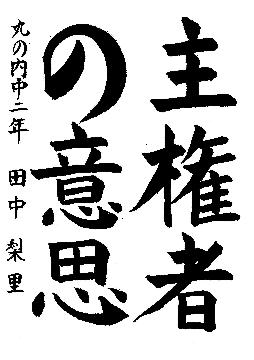 主権者
の意思
丸の内中二年 田中梨里